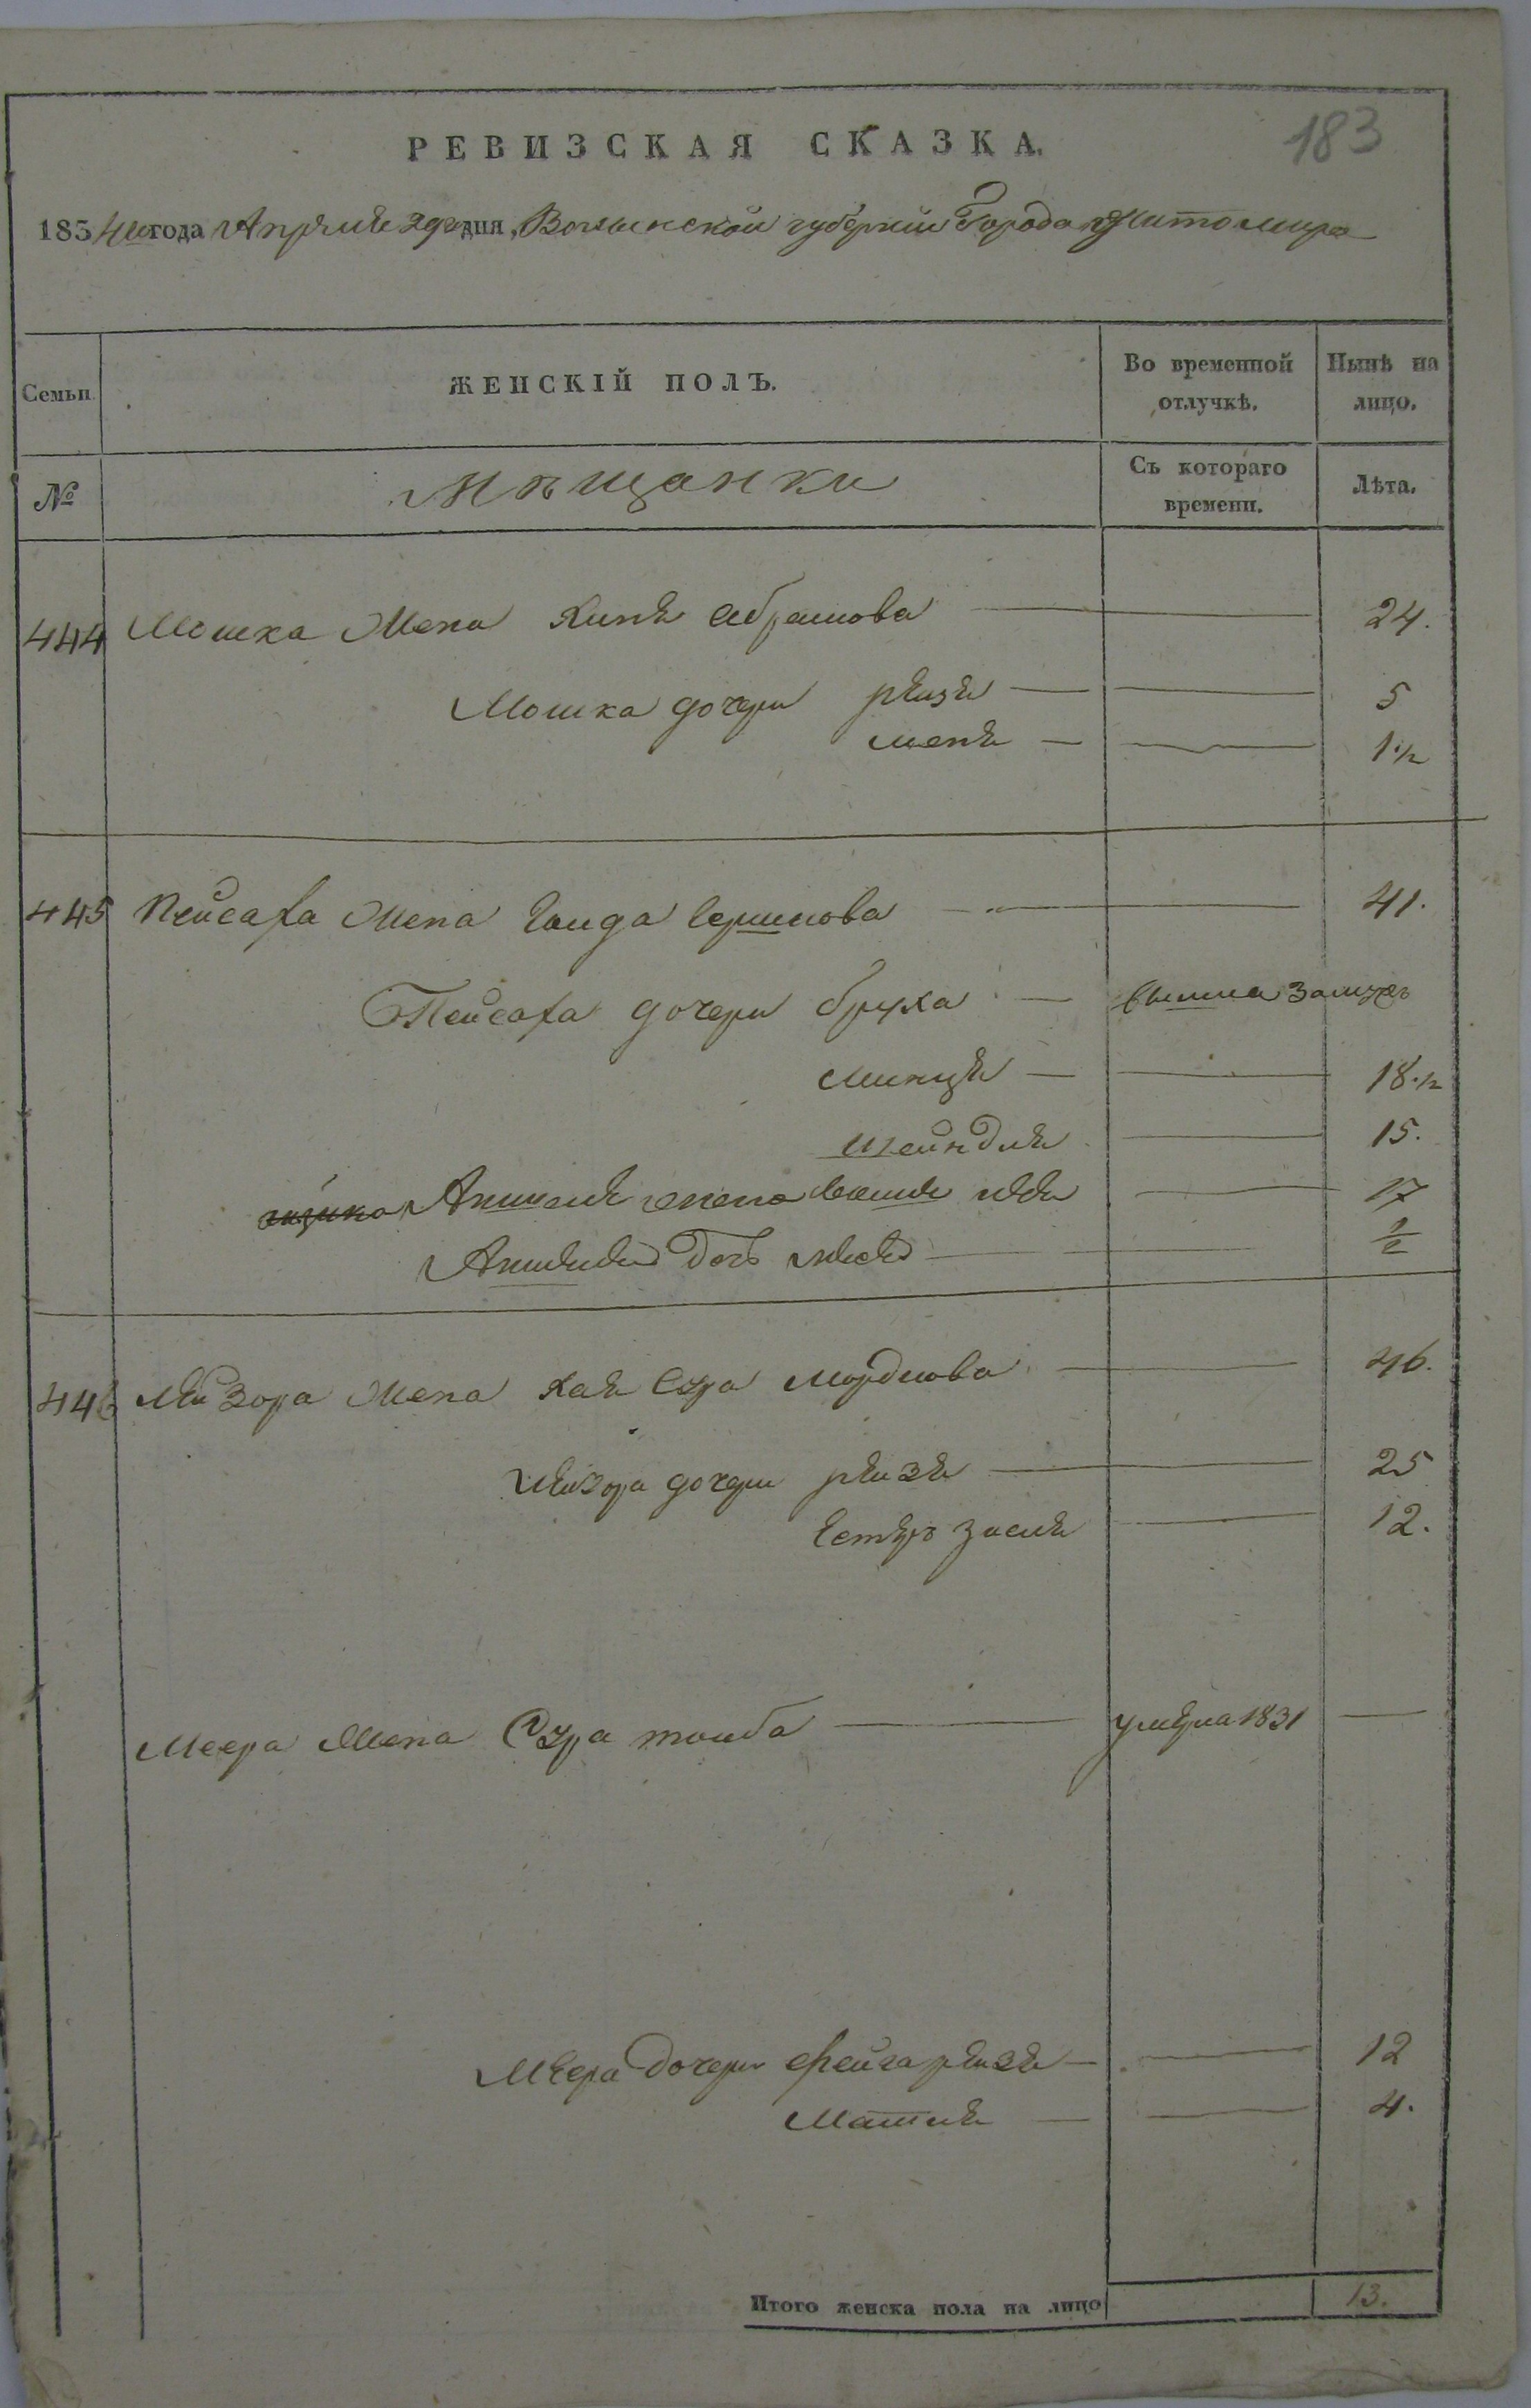 183
РЕВИЗСКАЯ СКАЗКА.
1834го года Апреля дня, Волынской губернии Города Житомира
Семьи.
ЖЕНСКІЙ ПОЛЪ.
Во временной отлучкѣ.
Нынѣ на лицо.
№
Мѣщанки
Съ котораго времени.
Лѣта.
444 Мошка Жена Хипе Абрамова — 24.
Мошка дочери рейзе — 5
1 1/2
445 Пейсаха Жена Гершкова — 41.
Пейсаха дочери бруха — вышла замужъ
Минце — 18 1/2
шейндле — 15.
жена — 17
дочь — 1/2
446 Лейзора Жена Хае Сура Мордкова — 46.
Лейзора дочери рейзе — 25
Естеръ — 12.
Меера Жена Сура тоиба — умерла 1831 —
Меера дочери Фейга рейзе — 12
4.
Итого женска пола на лицо 13.